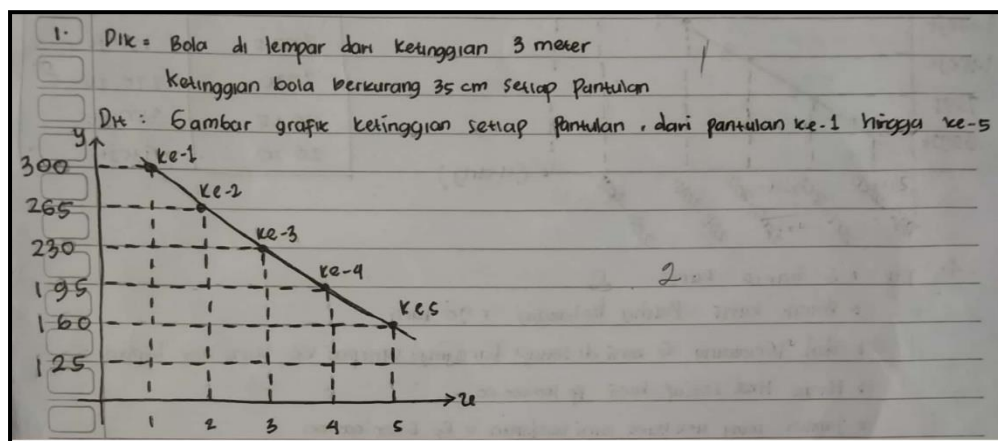 1. Dik = Bola di lempar dari Ketinggian 3 meter
Ketinggian bola berkurang 35 cm setiap Pantulan
Dit : Gambar grafik ketinggian setiap pantulan, dari pantulan ke-1 hingga ke-5
y
300 ke-1
265 ke-2
230 ke-3
195 ke-4
2
160 ke5
125
x
1 2 3 4 5